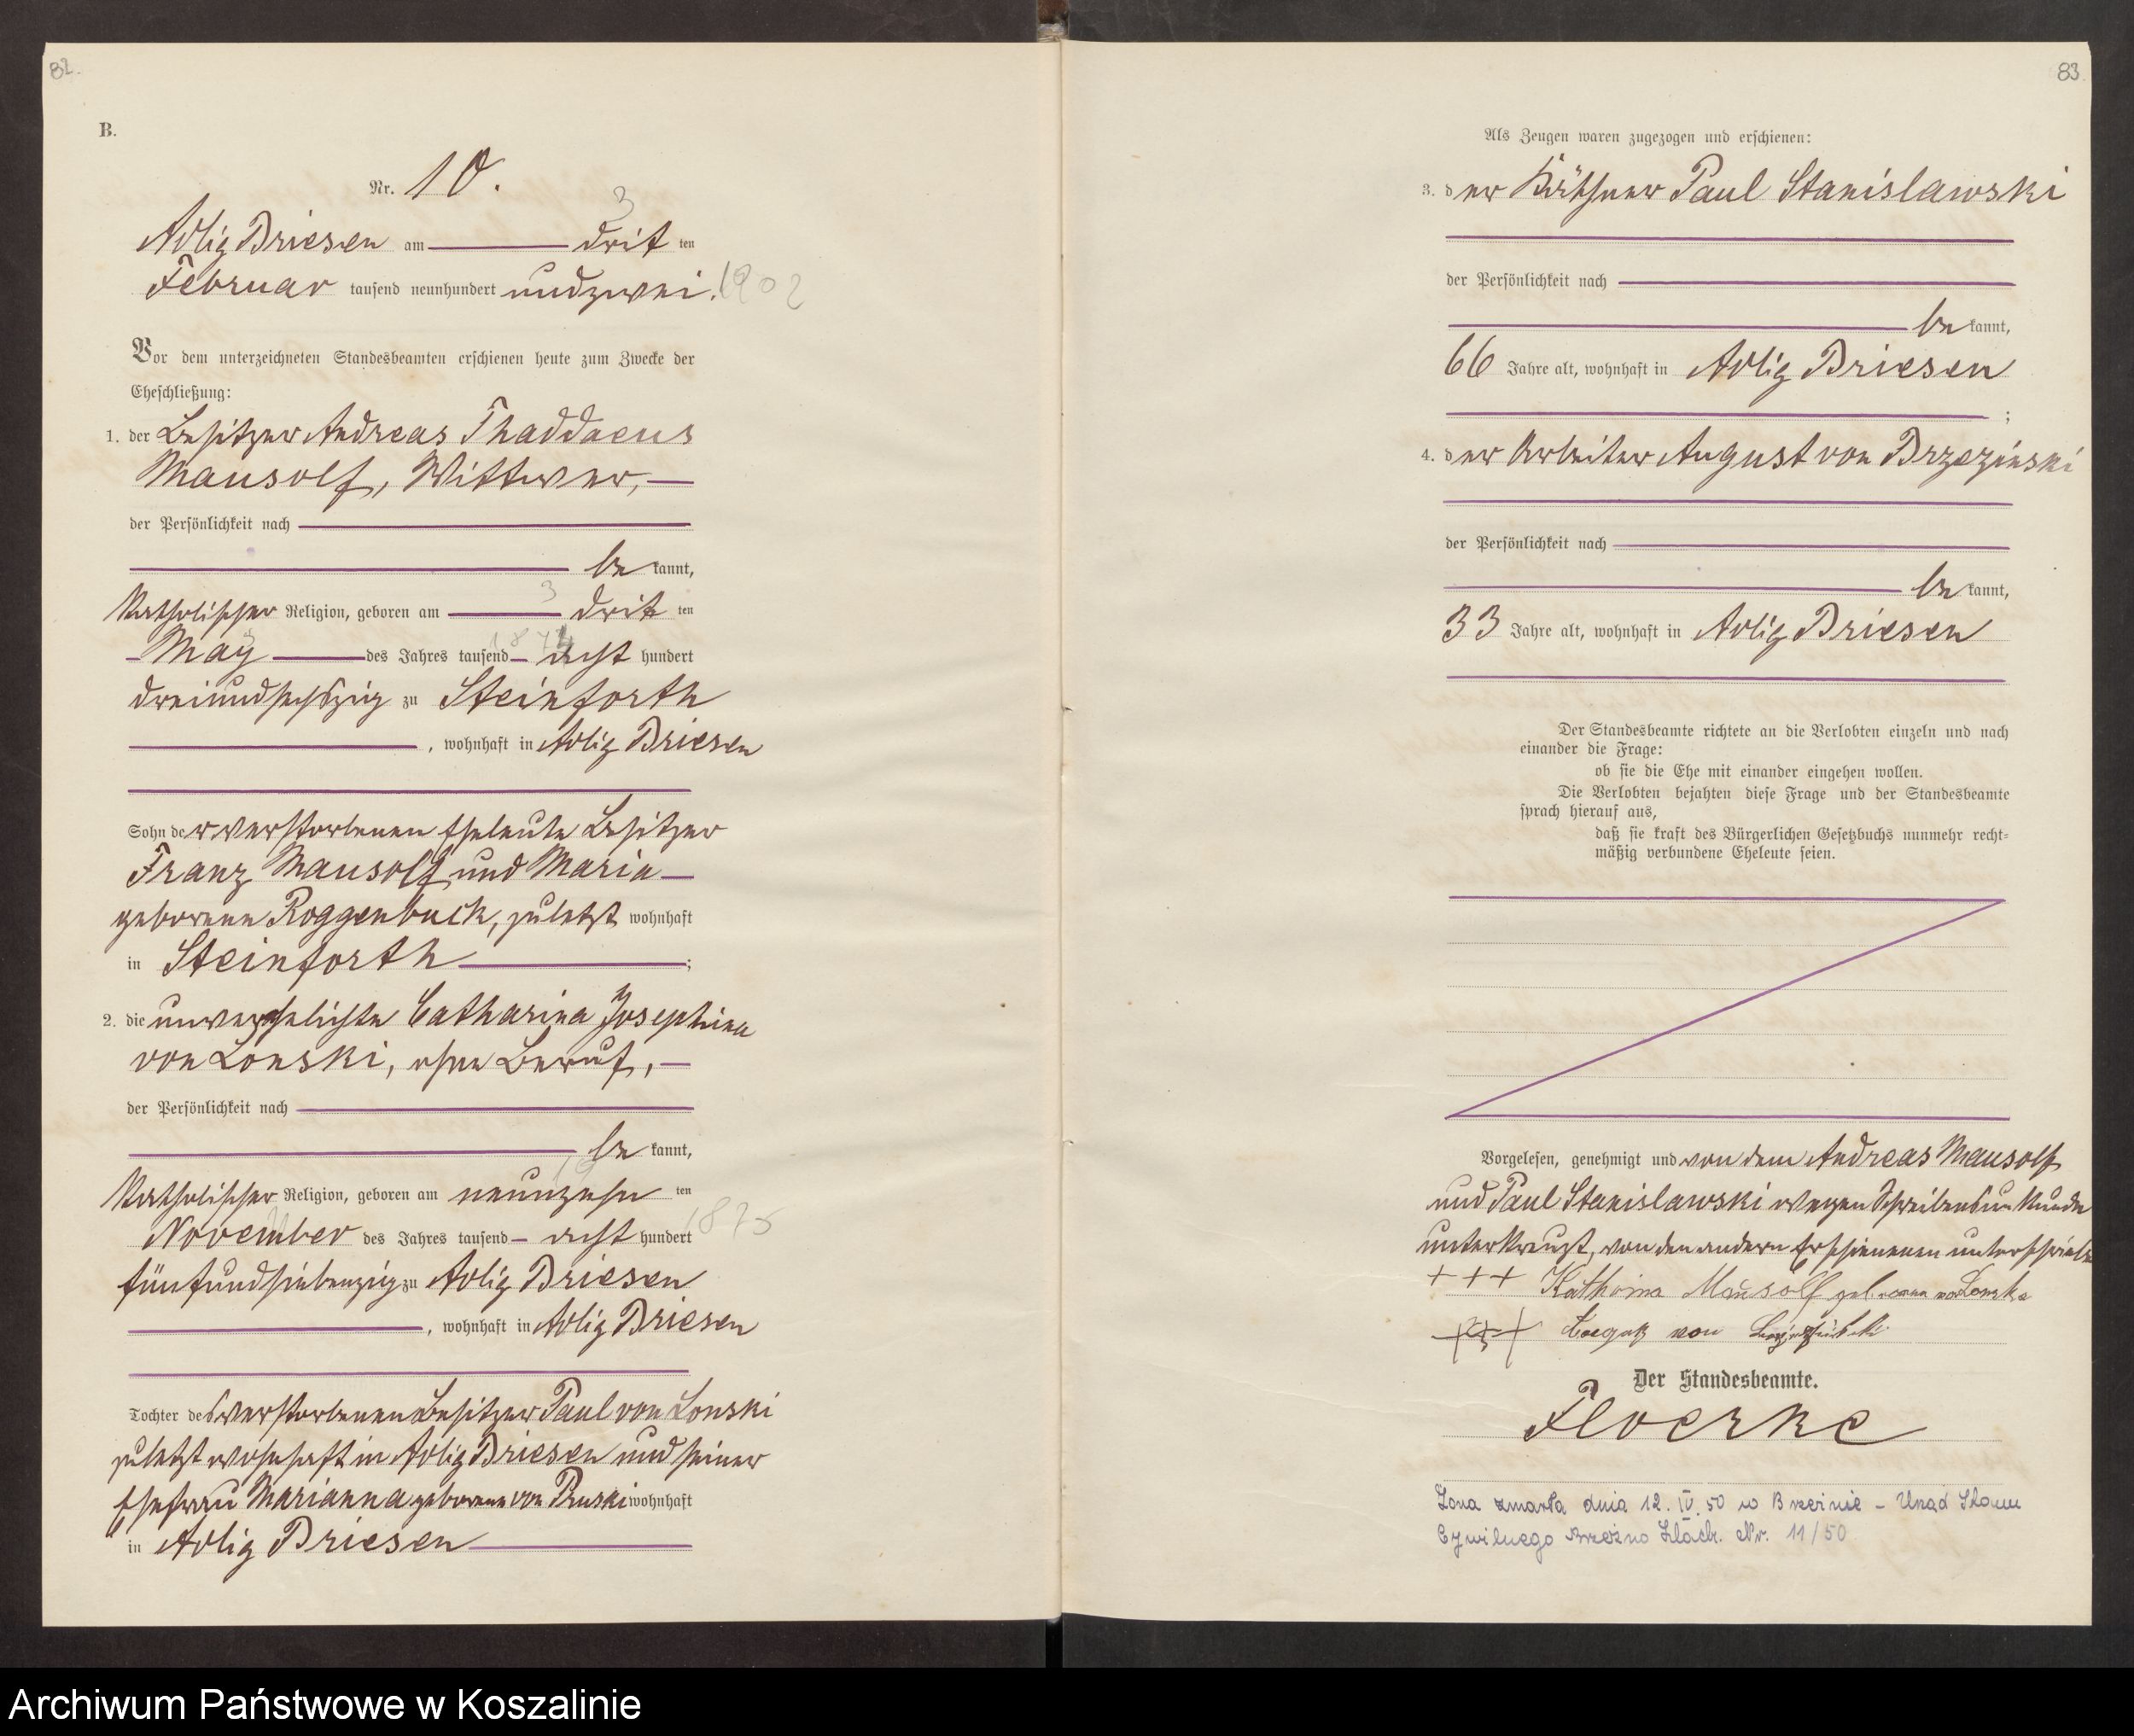 82.
B.
Nr. 10.
3
Adlig Briesen am drit ten
Februar tausend neunhundert undzwei. 1902
Vor dem unterzeichneten Standesbeamten erschienen heute zum Zwecke der
Eheschließung:
1. der Besitzer Andreas Thaddaeus
Mausolf, Wittwer,
der Persönlichkeit nach
be kannt,
3
katholischer Religion, geboren am drit ten
May des Jahres tausend acht hundert
dreiundsechszig zu Steinforth
, wohnhaft in Adlig Briesen
Sohn der verstorbenen Eheleute Besitzer
Franz Mausolf und Maria
geborene Roggenbuck, zuletzt wohnhaft
in Steinforth ;
2. die unverehelichte Catharina Josephina
von Lonski, ohne Beruf,
der Persönlichkeit nach
be kannt,
katholischer Religion, geboren am neunzehn ten
November des Jahres tausend acht hundert 1875
fünfundsiebenzig zu Adlig Briesen
, wohnhaft in Adlig Briesen
Tochter des verstorbenen Besitzer Paul von Lonski
zuletzt wohnhaft in Adlig Briesen und seiner
Ehefrau Marianna geborene von Pruski wohnhaft
in Adlig Briesen
83
Als Zeugen waren zugezogen und erschienen:
3. der Käthner Paul Stanislawski
der Persönlichkeit nach
be kannt,
66 Jahre alt, wohnhaft in Adlig Briesen
;
4. der Arbeiter August von Brzezinski
der Persönlichkeit nach
be kannt,
33 Jahre alt, wohnhaft in Adlig Briesen
Der Standesbeamte richtete an die Verlobten einzeln und nach
einander die Frage:
ob sie die Ehe mit einander eingehen wollen.
Die Verlobten bejahten diese Frage und der Standesbeamte
sprach hierauf aus,
daß sie kraft des Bürgerlichen Gesetzbuchs nunmehr recht-
mäßig verbundene Eheleute seien.
Vorgelesen, genehmigt und von dem Andreas Mausolf
und Paul Stanislawski wegen Schreibensunkunde
unterkreuzt, von den andern Erschienenen unterschrieben
+++ Kathrina Mausolf geborene von Lonska
+++ von
Der Standesbeamte.
Floerke
Żona zmarła dnia 12.IV.50 w Brzeźnie - Urząd Stanu
Cywilnego Brzeźno Szlach. Nr. 11/50
Archiwum Państwowe w Koszalinie